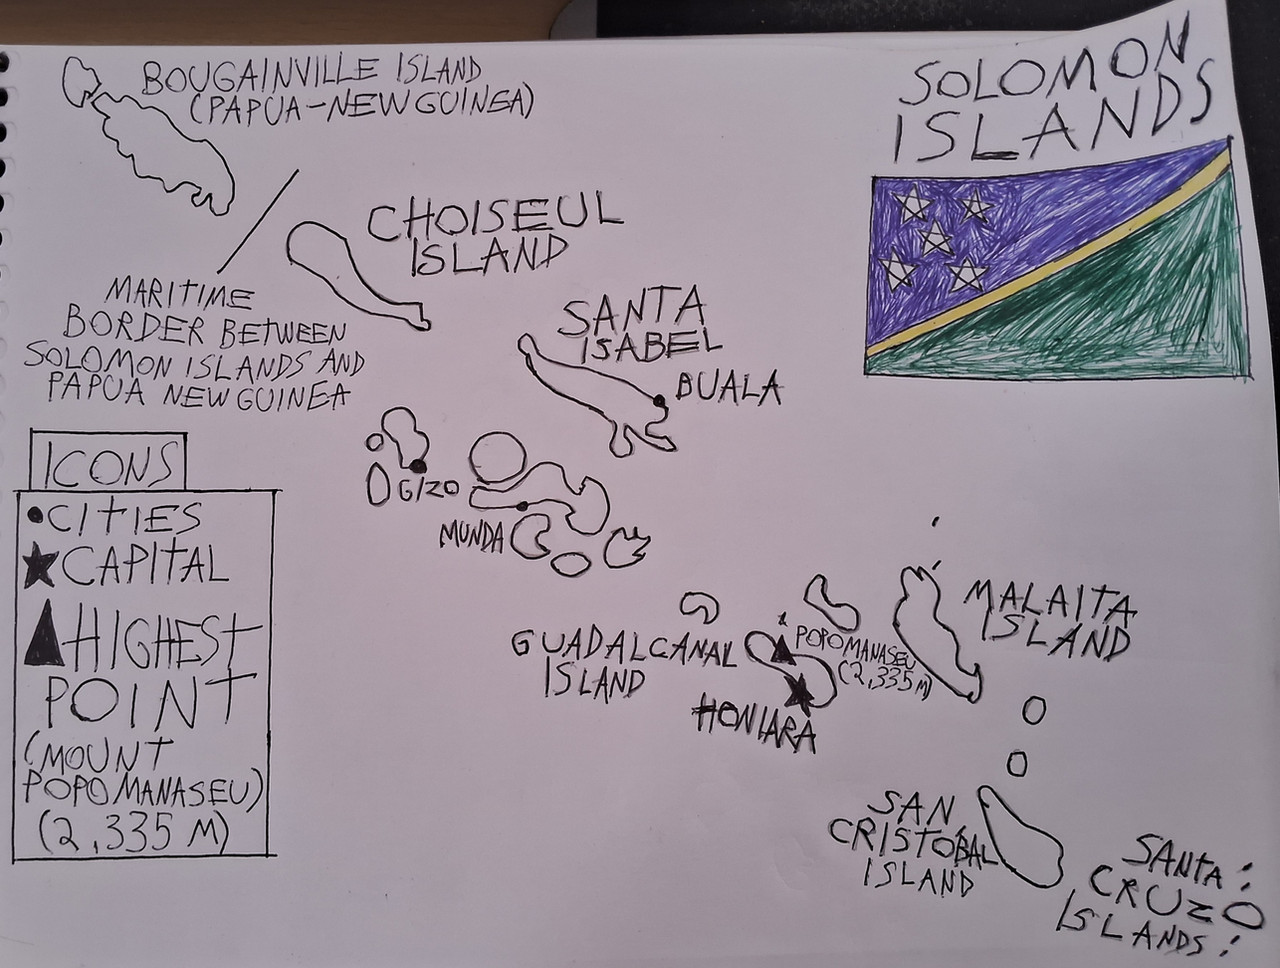 SOLOMON
ISLANDS
BOUGAINVILLE ISLAND
(PAPUA-NEW GUINEA)
CHOISEUL
ISLAND
MARITIME
BORDER BETWEEN
SOLOMON ISLANDS AND
PAPUA NEW GUINEA
SANTA
ISABEL
BUALA
GIZO
MUNDA
ICONS
CITIES
CAPITAL
HIGHEST
POINT
(MOUNT
POPOMANASEU)
(2,335 M)
GUADALCANAL
ISLAND
POPOMANASEU
(2,335 M)
HONIARA
MALAITA
ISLAND
SAN
CRISTOBAL
ISLAND
SANTA
CRUZ
ISLANDS